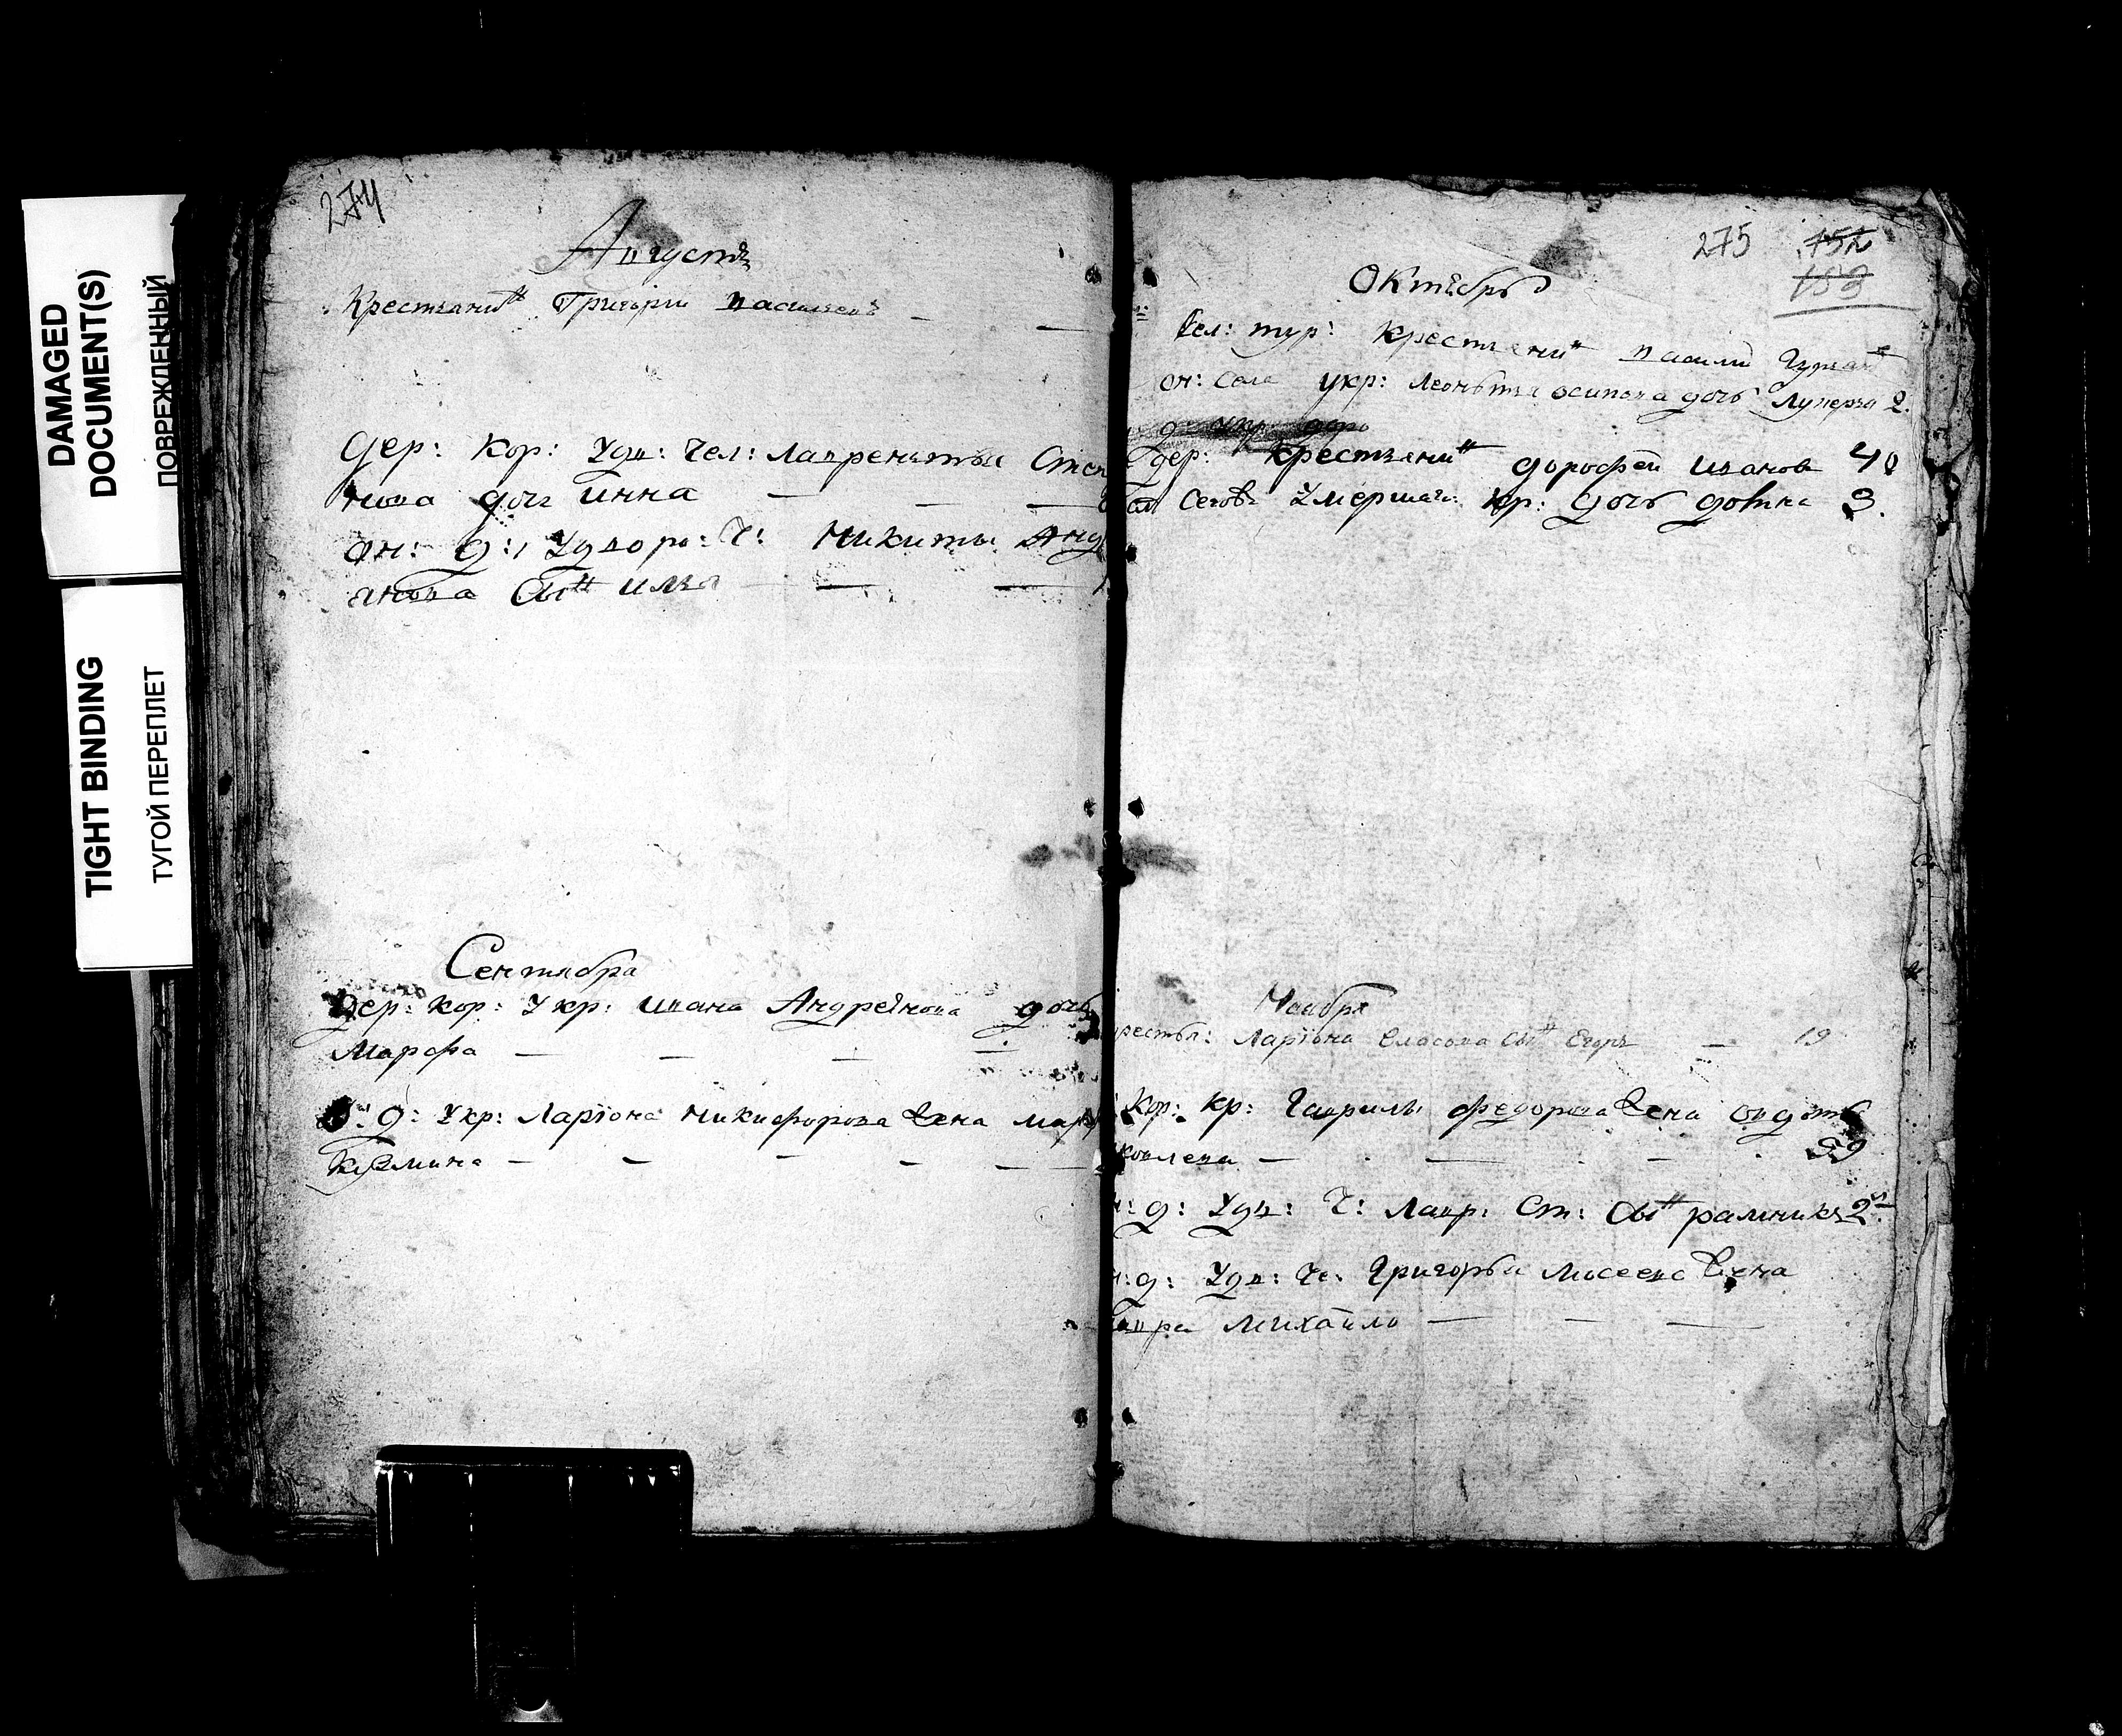 DAMAGED
DOCUMENT(S)
ПОВРЕЖДЕННЫЙ
TIGHT BINDING
ТУГОЙ ПЕРЕПЛЕТ
274
Августъ
Крестьянинъ Григории васильевъ
Дер: Кор: Удв: Чел: Лаврентья Степ
нова дочь инна
Он: д: Удворо: Ч: Никиты Анд
янова Сынъ илья
Сентября
Дер: Кор: У кр: ивана Андреянова дочь
Марфа
д: Укр: Ларiона Никифорова жена мар
Кузмина
275 152
153
Октябрь
Сел: тур: Крестьянинъ васили
он: Села укр: Леонтья осипова дочь Лукерья 2.
дер: Крестьянинъ дорофеи иванов 40
умершаго кр: дочь 3.
Ноября
рестья: Ларiона власова Сынъ Егоръ 19
Кор: кр: Гаврилы федорова жена
ковлева 59
н: д: Удв: Ч: Лавр: Ст: Сынъ 2
н: д: Удв: Че: Григорья мосеева жена
михаила